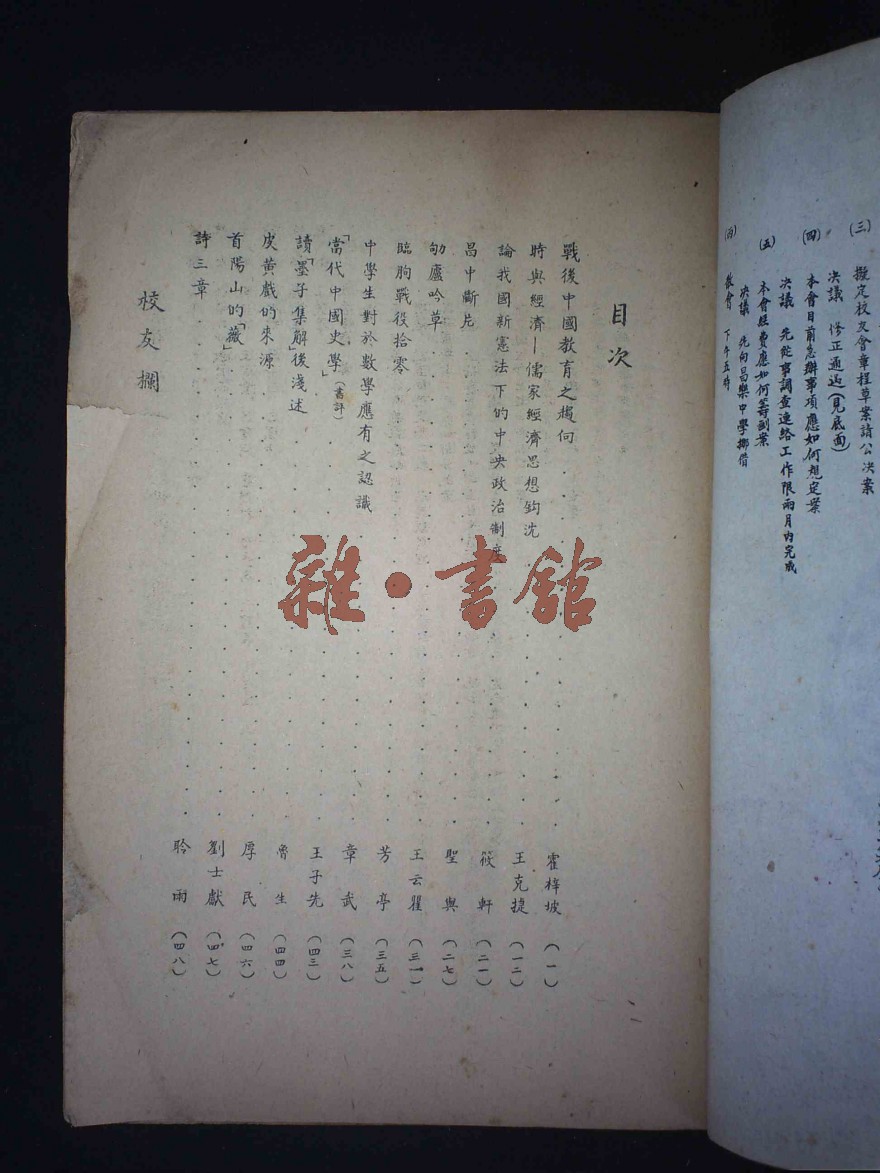 (三) 擬定校友會章程草案請公决案
决議 修正通過(見底面)
(四) 本會目前急辦事項應如何規定案
决議 先從事調查連絡工作限兩月內完成
(五) 本會經費應如何籌劃案
决議 先向昌樂中學挪借
散會 下午五時
目次
戰後中國教育之趨向 霍梓坡 (一)
時與經濟—儒家經濟思想鈎沈 王克捷 (一二)
論我國新憲法下的中央政治制度 筱軒 (二一)
昌中斷片 聖與 (二七)
劬廬吟草 王云瞿 (三一)
臨朐戰役拾零 芳亭 (三五)
中學生對於數學應有之認識 章武 (三八)
「當代中國史學」(書評) 王子先 (四三)
讀「墨子集解」後淺述 魯生 (四四)
皮黃戲的來源 厚民 (四六)
首陽山的「薇」 劉士獻 (四七)
詩三章 聆雨 (四八)
校友欄
雜·書館